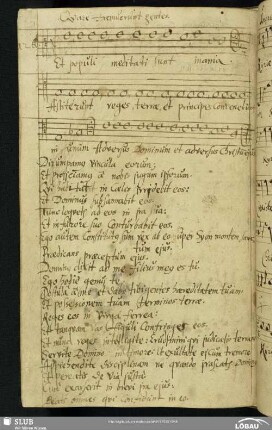 Quare fremuerunt gentes
Et populi meditati sunt inania
Astiterunt reges terrae et principes convenerunt
in unum adversus Dominum et adversus Christum
Dirumpamus vincula eorum:
Et projiciamus a nobis jugum ipsorum.
Qui habitat in coelis irridebit eos:
Et Dominus subsannabit eos.
Tunc loquetur ad eos in ira sua:
Et in furore suo conturbabit eos.
Ego autem constitutus sum rex ab eo super Syon montem
Praedicans praeceptum ejus.
Dominus dixit ad me filius meus es tu:
Ego hodie genui te.
Postula a me dabo tibi gentes haereditatem tuam
Et possessionem tuam terminos terrae.
Reges eos in virga ferrea:
Et tanquam vas figuli confringes eos.
Et nunc reges intelligite: Erudimini qui judicatis terram
Servite Domino in timore: et exultate ei cum tremore
Apprehendite disciplinam ne quando irascatur Dominus
Et pereatis de via justa
Cum exarserit in brevi ira ejus.
Beati omnes qui confidunt in eo.
SLUB
LÖBAU